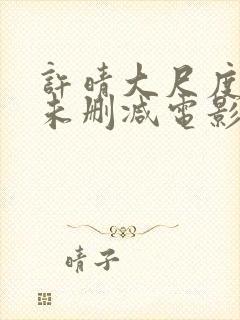 許晴大尺度
未删减電影
晴子